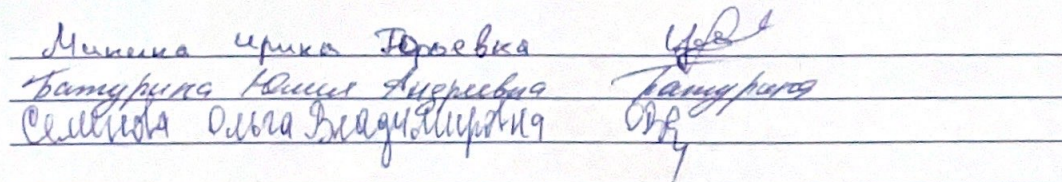 Минина Ирина Юрьевна
Батурина Юлия Андреевна Батурина
Семенова Ольга Владимировна